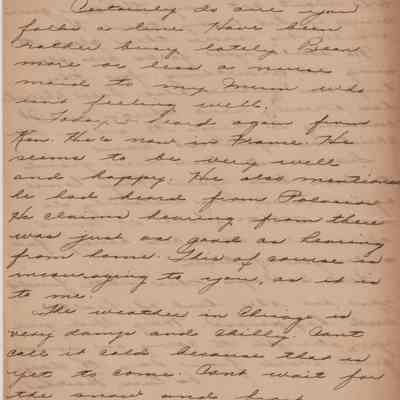 Certainly do owe you
folks a line. Have been
rather busy lately. Been
more or less a nurse
maid to my Mum who
isn't feeling well.
Today I heard again from
Ken. He's now in France. He
seems to be very well
and happy. He also mentioned
he had heard from
He claims hearing from there
was just as good as hearing
from home. This of course is
encouraging to you, as it is
to me.
The weather in Chicago is
very damp and chilly. Cant
call it cold because that is
yet to come. Cant wait for
the snow and